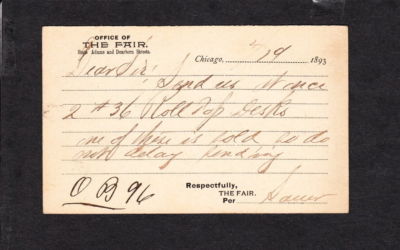 OFFICE OF
THE FAIR.
State Adams and Dearborn Streets.
Chicago, 4/19 1893
Dear Sir: Send us at once
2 #36 Roll Top Desks
one of these is sold so do
not delay sending
O B 96
Respectfully,
THE FAIR.
Per